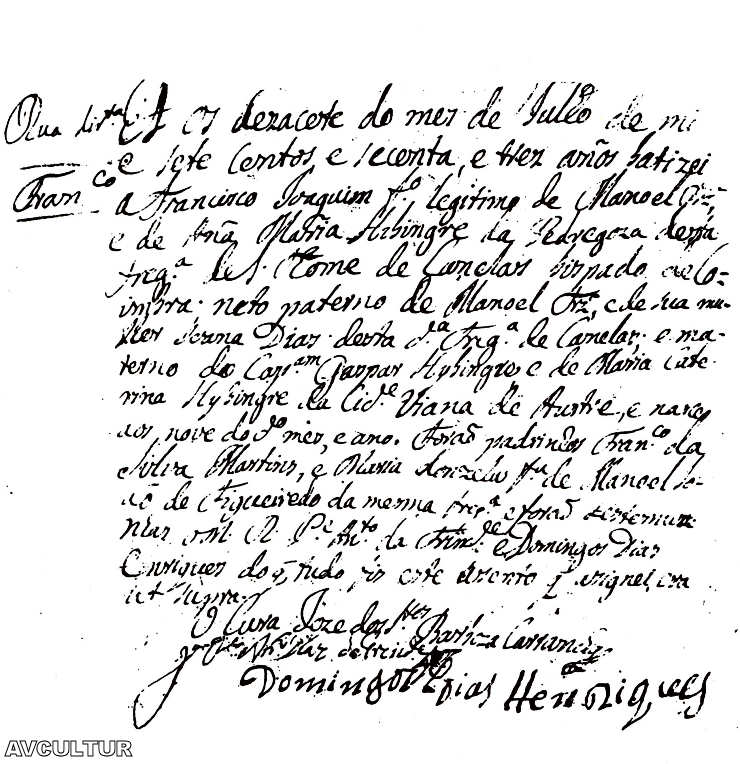 Rua dir.ta Aos dezacete do mes de Julho de mil
Fran.co e sete centos, e secenta, e trez años batizei
a Francisco Joaquim f.o legitimo de Manoel Frz,
e de Ana Maria Hisingre da Pedregoza desta
freg.a de S. Thome de Canelas bispado de Co-
imbra. neto paterno de Manoel Frz, e de sua mu-
lher Diaz desta d.a Freg.a de Canelas. e ma-
terno do Cap.am Gaspar Hysingre e de Maria Cate-
rina Hysingre da Cid.e Viana de Austre, e naceo
aos nove do d.o mes, e ano. Foraõ padrinhos Fran.co da
Sylva Martins, e Maria donzela f.a de Manoel Jo-
aõ de Figueiredo da mesma freg.a e foraõ testemun-
has o M. R. P.e An.to da Trin.de e Domingos Dias
Enriques do q tudo fis este acento q asignei, era
ut supra
O Cura Joze dos Barboza
Domingos Dias Henriques
AVCULTUR